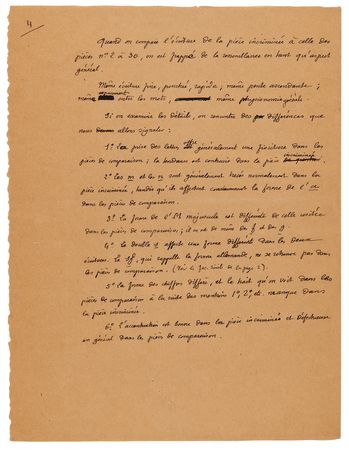 4
Quand on compare l'écriture de la pièce incriminée à celle des
pièces nos 2 à 30, on est frappé de la ressemblance en tant qu'aspect
général.
Même écriture fine, penchée, rapide ; même pente ascendante ;
même espacement entre les mots, même physionomie générale.
Si on examine les détails, on constate des différences que
nous allons signaler :
1° La des lettres généralement une
pièces de comparaison ; la est continue dans la pièce incriminée
2° les m et les n sont généralement tracés normalement dans la
pièce incriminée, tandis qu'ils affectent constamment la forme de l'u
dans les pièces de comparaison.
3° la forme de l'M majuscule est différente de celle usitée
dans les pièces de comparaison ; il en est de même de f et de g.
4° le double s affecte une forme différente dans les deux
écritures. Le qui rappelle la forme allemande, ne se retrouve pas dans
les pièces de comparaison. (Voir le fac. simile de la page 2).
5° la forme des chiffres diffère, et le trait qu'on voit dans les
pièces de comparaison à la suite des mentions 1°, 2°, etc. manque dans
la pièce incriminée.
6° l'accentuation est bonne dans la pièce incriminée et défectueuse
en général dans les pièces de comparaison.